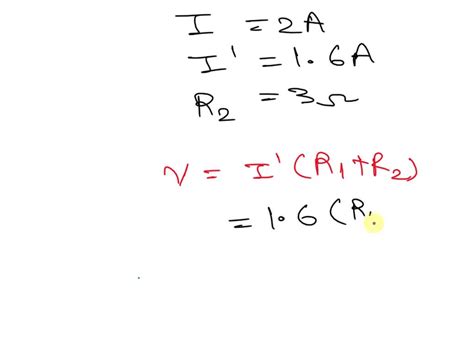 I = 2A
I' = 1.6A
R₂ = 3Ω
V = I' (R₁+R₂)
= 1.6 (R₁